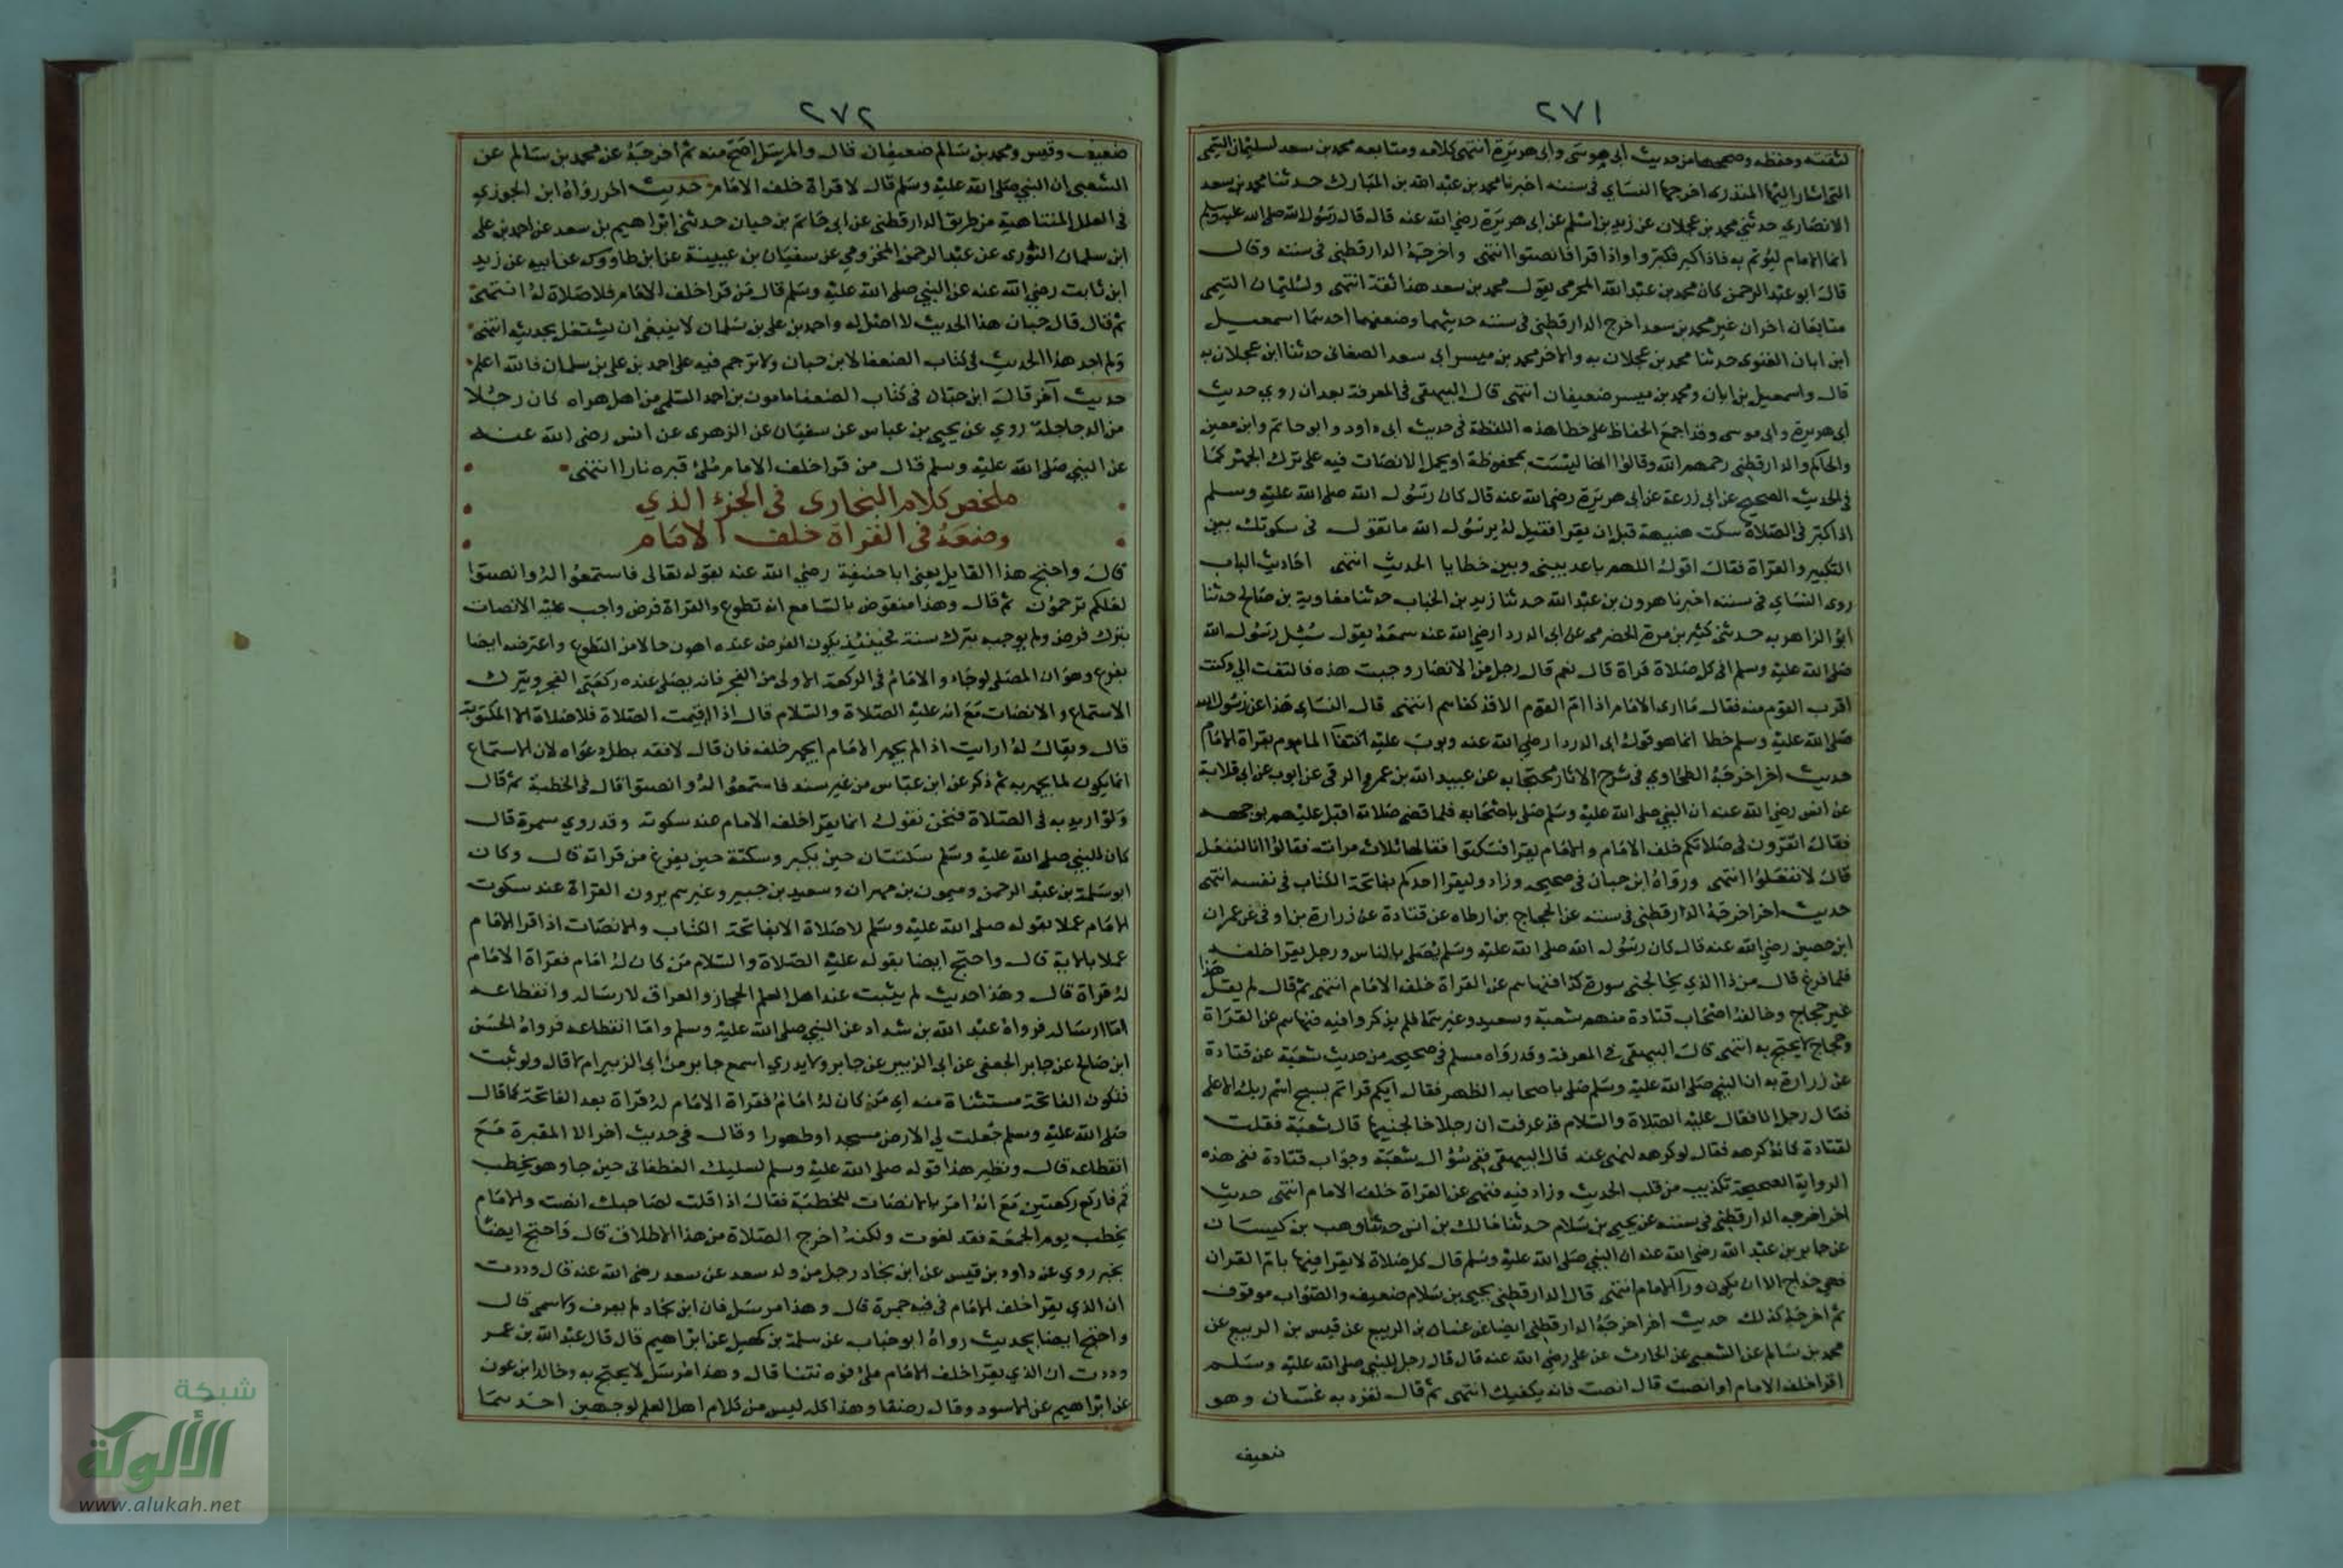 ٢٧١
لثقته وحفظه وصححها من حديث ابى موسى وابى هريرة انتهى كلامه ومتابعه محمد بن سعد لسليمان التيمى
التى اشار اليها المنذرى اخرجها النساى فى سننه اخبرنا محمد بن عبد الله بن المبارك حدثنا محمد بن سعد
الانصارى حدثنى محمد بن عجلان عن زيد بن اسلم عن ابى هريرة رضى الله عنه قال قال رسول الله صلى الله عليه وسلم
انما الامام ليؤتم به فاذا كبر فكبروا واذا قرا فانصتوا انتهى واخرجه الدارقطنى فى سننه وقال
قال ابو عبد الرحمن كان محمد بن عبد الله المخرمى يقول محمد بن سعد هذا ثقة انتهى ولسليمان التيمى
متابعان اخران غير محمد بن سعد اخرج الدارقطنى فى سننه حديثهما وضعفهما احدهما اسمعيل
ابن ابان الغنوى حدثنا محمد بن عجلان به والاخر محمد بن ميسر ابى سعد الصغانى حدثنا ابن عجلان به
قال واسمعيل بن ابان ومحمد بن ميسر ضعيفان انتهى قال البيهقى فى المعرفة بعد ان روى حديث
ابى هريرة وابى موسى وقد اجمع الحفاظ على خطا هذه اللفظة فى حديث ابى داود وابو حاتم وابن معين
والحاكم والدارقطنى رحمهم الله وقالوا انها ليست بمحفوظة او يحمل الانصات فيه على ترك الجهر كما
فى الحديث الصحيح عن ابى زرعة عن ابى هريرة رضى الله عنه قال كان رسول الله صلى الله عليه وسلم
اذا كبر فى الصلاة سكت هنيهة قبل ان يقرا فقيل له يرسول الله ما تقول فى سكوتك بين
التكبير والقراة فقال اقول اللهم باعد بينى وبين خطايا الحديث انتهى احاديث الباب
روى النساى فى سننه اخبرنا هرون بن عبد الله حدثنا زيد بن الحباب حدثنا معاوية بن صالح حدثنا
ابو الزاهريه حدثنى كثير بن مرة الحضرمى عن ابى الدردا رضى الله عنه سمعه يقول سئل رسول الله
صلى الله عليه وسلم افى كل صلاة قراة قال نعم قال رجل من الانصار وجبت هذه فالتفت الى وكنت
اقرب القوم منه فقال ما ارى الامام اذا ام القوم الا قد كفاهم انتهى قال النساى هذا عن رسول الله
صلى الله عليه وسلم خطا انما هو قول ابى الدردا رضى الله عنه وبوب عليه اكتفا الماموم بقراة الامام
حديث اخر اخرجه الطحاوى فى شرح الاثار محتجا به عن عبيد الله بن عمرو الرقى عن ايوب عن ابى قلابة
عن انس رضى الله عنه ان النبى صلى الله عليه وسلم صلى باصحابه فلما قضى صلاته اقبل عليهم بوجهه
فقال اتقرون فى صلاتكم خلف الامام والامام يقرا فسكتوا فقالها ثلاث مرات فقالوا انا لنفعل
قال لا تفعلوا انتهى ورواه ابن حبان فى صحيحه وزاد وليقرا احدكم بفاتحة الكتاب فى نفسه انتهى
حديث اخر اخرجه الدارقطنى فى سننه عن الحجاج بن ارطاه عن قتادة عن زرارة بن اوفى عن عمران
ابن حصين رضى الله عنه قال كان رسول الله صلى الله عليه وسلم يصلى بالناس ورجل يقرا خلفه
فلما فرغ قال من ذا الذى يخالجنى سورة كذا فنهاهم عن القراة خلف الامام انتهى ثم قال لم يقل هذا
غير حجاج وخالفه اصحاب قتادة منهم شعبة وسعيد وغيرهما فلم يذكروا فيه فنهاهم عن القراة
وحجاج لا يحتج به انتهى قال البيهقى فى المعرفة وقد رواه مسلم فى صحيحه من حديث شعبة عن قتادة
عن زرارة به ان النبى صلى الله عليه وسلم صلى باصحابه الظهر فقال ايكم قرا تم بسبح اسم ربك الاعلى
فقال رجل انا فقال عليه الصلاة والسلام قد عرفت ان رجلا خالجنيها قال شعبة فقلت
لقتادة كانه كرهه فقال لو كرهه لنهى عنه قال البيهقى ففى سؤال شعبة وجواب قتادة فى هذه
الرواية الصحيحة تكذيب من قلب الحديث وزاد فيه فنهى عن القراة خلف الامام انتهى حديث
اخر اخرجه الدارقطنى فى سننه عن يحيى بن سلام حدثنا مالك بن انس حدثنا وهب بن كيسان
عن جابر بن عبد الله رضى الله عنه ان النبى صلى الله عليه وسلم قال كل صلاة لا يقرا فيها بام القران
فهى خداج الا ان يكون ورآ الامام انتهى قال الدارقطنى يحيى بن سلام ضعيف والصواب موقوف
ثم اخرجه كذلك حديث اخر اخرجه الدارقطنى ايضا عن غسان بن الربيع عن قيس بن الربيع عن
محمد بن سالم عن الشعبى عن الحارث عن على رضى الله عنه قال قال رجل للنبى صلى الله عليه وسلم
اقرا خلف الامام او انصت قال انصت فانه يكفيك انتهى ثم قال تفرد به غسان وهو
ضعيف
٢٧٢
ضعيف وقيس ومحمد بن سالم ضعيفان قال والمرسل اصح منه ثم اخرجه عن محمد بن سالم عن
الشعبى ان النبى صلى الله عليه وسلم قال لا قراة خلف الامام حديث اخر رواه ابن الجوزى
فى العلل المتناهية من طريق الدارقطنى عن ابى حاتم بن حبان حدثنى ابراهيم بن سعد عن احمد بن على
ابن سلمان الثورى عن عبد الرحمن المخزومى عن سفيان بن عيينة عن ابن طاووس عن ابيه عن زيد
ابن ثابت رضى الله عنه عن النبى صلى الله عليه وسلم قال من قرا خلف الامام فلا صلاة له انتهى
ثم قال قال حبان هذا الحديث لا اصل له واحمد بن على بن سلمان لا ينبغى ان يشتغل بحديثه انتهى
ولم اجد هذا الحديث فى كتاب الضعفا لابن حبان ولا ترجم فيه على احمد بن على بن سلمان فالله اعلم
حديث آخر قال ابن حبان فى كتاب الضعفا مامون بن احمد السلمى من اهل هراه كان رجلا
من الدجاجلة روى عن يحيى بن عباس عن سفيان عن الزهرى عن انس رضى الله عنه
عن النبى صلى الله عليه وسلم قال من قرا خلف الامام ملئ قبره نارا انتهى
ملخص كلام البخارى فى الجزء الذى
وضعه فى القراة خلف الامام
قال واحتج هذا القايل يعنى ابا حنيفة رضى الله عنه بقوله تعالى فاستمعوا له وانصتوا
لعلكم ترحمون ثم قال وهذا منقوض بالثنا مع انه تطوع والقراة فرض واجب عليه الانصات
بترك فرض ولم يوجبه بترك سنة فحينئذ يكون الفرض عنده اهون حالا من التطوع واعترضه ايضا
بفرع وهو ان المصلى لو جاء والامام فى الركعة الاولى من الفجر فانه يصلى عنده ركعتى الفجر ويترك
الاستماع والانصات مع انه عليه الصلاة والسلام قال اذا اقيمت الصلاة فلا صلاة الا المكتوبة
قال ويقال له ارايت اذا لم يجهر الامام ايجهر خلفه فان قال لا فقد بطل دعواه لان الاستماع
انما يكون لما يجهر به ثم ذكر عن ابن عباس من غير سند فاستمعوا له وانصتوا قال فى الخطبة ثم قال
ولو اريد به فى الصلاة فنحن نقول انما يقرا خلف الامام عند سكوته وقد روى سمرة قال
كان للنبى صلى الله عليه وسلم سكتتان حين يكبر وسكتة حين يفرغ من قراته قال وكان
ابو سلمة بن عبد الرحمن وميمون بن مهران وسعيد بن جبير وغيرهم يرون القراة عند سكوت
الامام عملا بقوله صلى الله عليه وسلم لا صلاة الا بفاتحة الكتاب والانصات اذا قرا الامام
عملا بالاية قال واحتج ايضا بقوله عليه الصلاة والسلام من كان له امام فقراة الامام
له قراة قال وهذا حديث لم يثبت عند اهل العلم الحجاز والعراق لارساله وانقطاعه
اما ارساله فرواه عبد الله بن شداد عن النبى صلى الله عليه وسلم واما انقطاعه فرواه الحسن
ابن صالح عن جابر الجعفى عن ابى الزبير عن جابر ولا يدرى اسمع جابر من ابى الزبير ام لا قال ولو ثبت
فتكون الفاتحة مستثناة منه اى من كان له امام فقراة الامام له قراة بعد الفاتحة كما قال
صلى الله عليه وسلم جعلت لى الارض مسجدا وطهورا وقال فى حديث اخر الا المقبرة مع
انقطاعه قال ونظير هذا قوله صلى الله عليه وسلم لسليك الغطفانى حين جا وهو يخطب
قم فاركع ركعتين مع انه امر بالانصات للخطبة فقال اذا قلت لصاحبك انصت والامام
يخطب يوم الجمعة فقد لغوت ولكنه اخرج الصلاة من هذا الاطلاق قال واحتج ايضا
بخبر روى عن داود بن قيس عن ابن بجاد رجل من ولد سعد عن سعد رضى الله عنه قال وددت
ان الذى يقرا خلف الامام فى فيه جمرة قال وهذا مرسل فان ابن بجاد لم يعرف ولا سمى قال
واحتج ايضا بحديث رواه ابو حباب عن سلمة بن كهيل عن ابراهيم قال قال عبد الله بن عمر
وددت ان الذى يقرا خلف الامام ملئ فوه نتنا قال وهذا مرسل لا يحتج به وخالد ابن عون
عن ابراهيم عن الاسود وقال رضفا وهذا كله ليس من كلام اهل العلم لوجهين احدهما
شبكة
الألوكة
www.alukah.net